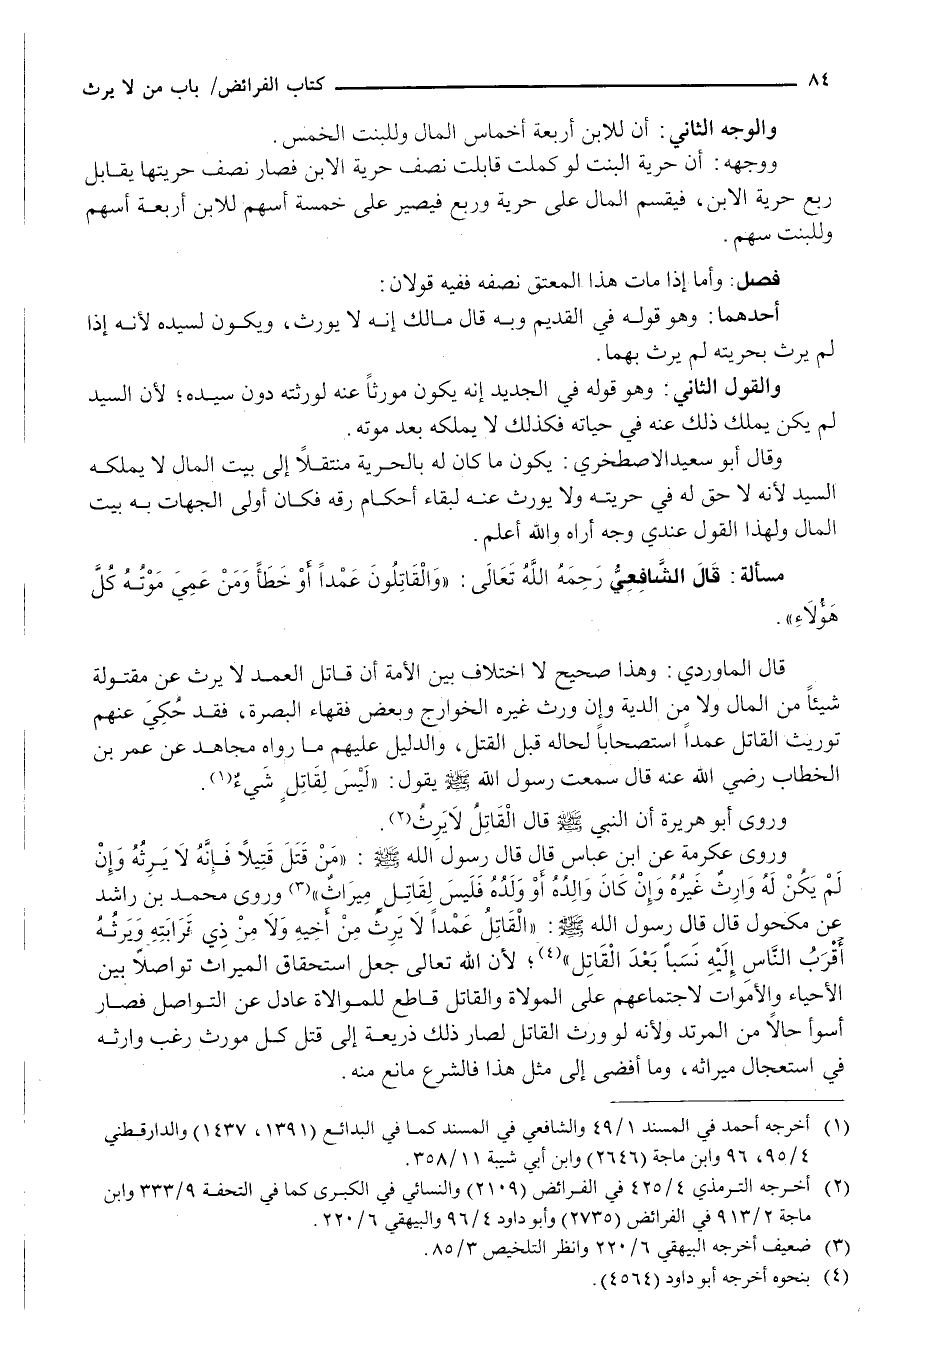 ٨٤ ــــــــــــ كتاب الفرائض/ باب من لا يرث
والوجه الثاني: أن للابن أربعة أخماس المال وللبنت الخمس.
ووجهه: أن حرية البنت لو كملت قابلت نصف حرية الابن فصار نصف حريتها يقابل
ربع حرية الابن، فيقسم المال على حرية وربع فيصير على خمسة أسهم للابن أربعة أسهم
وللبنت سهم.
فصل: وأما إذا مات هذا المعتق نصفه ففيه قولان:
أحدهما: وهو قوله في القديم وبه قال مالك إنه لا يورث، ويكون لسيده لأنه إذا
لم يرث بحريته لم يرث بهما.
والقول الثاني: وهو قوله في الجديد إنه يكون مورثاً عنه لورثته دون سيده؛ لأن السيد
لم يكن يملك ذلك عنه في حياته فكذلك لا يملكه بعد موته.
وقال أبو سعيدالاصطخري: يكون ما كان له بالحرية منتقلاً إلى بيت المال لا يملكه
السيد لأنه لا حق له في حريته ولا يورث عنه لبقاء أحكام رقه فكان أولى الجهات به بيت
المال ولهذا القول عندي وجه أراه والله أعلم.
مسألة: قَالَ الشَّافِعِيُّ رَحِمَهُ اللَّهُ تَعَالَى: «وَالْقَاتِلُونَ عَمْداً أَوْ خَطَأً وَمَنْ عَمِيَ مَوْتُهُ كُلَّ
هَؤُلَاءِ».
قال الماوردي: وهذا صحيح لا اختلاف بين الأمة أن قاتل العمد لا يرث عن مقتولة
شيئاً من المال ولا من الدية وإن ورث غيره الخوارج وبعض فقهاء البصرة، فقد حُكِيَ عنهم
توريث القاتل عمداً استصحاباً لحاله قبل القتل، والدليل عليهم ما رواه مجاهد عن عمر بن
الخطاب رضي الله عنه قال سمعت رسول الله ﷺ يقول: «لَيْسَ لِقَاتِلٍ شَيءٌ»(١).
وروى أبو هريرة أن النبي ﷺ قال الْقَاتِلُ لَايَرِثُ(٢).
وروى عكرمة عن ابن عباس قال قال رسول الله ﷺ: «مَنْ قَتَلَ قَتِيلاً فَإِنَّهُ لَا يَرِثُهُ وَإِنْ
لَمْ يَكُنْ لَهُ وَارِثٌ غَيْرُهُ وَإِنْ كَانَ وَالِدُهُ أَوْ وَلَدُهُ فَلَيْسَ لِقَاتِلٍ مِيرَاثٌ»(٣) وروى محمد بن راشد
عن مكحول قال قال رسول الله ﷺ: «الْقَاتِلُ عَمْداً لَا يَرِثُ مِنْ أَخِيهِ وَلَا مِنْ ذِي قَرَابَتِهِ وَيَرِثُهُ
أَقْرَبُ النَّاسِ إِلَيْهِ نَسَباً بَعْدَ الْقَاتِلِ»(٤)؛ لأن الله تعالى جعل استحقاق الميراث تواصلاً بين
الأحياء والأموات لاجتماعهم على المولاة والقاتل قاطع للموالاة عادل عن التواصل فصار
أسوأ حالاً من المرتد ولأنه لو ورث القاتل لصار ذلك ذريعة إلى قتل كل مورث رغب وارثه
في استعجال ميراثه، وما أفضى إلى مثل هذا فالشرع مانع منه.
(١) أخرجه أحمد في المسند ٤٩/١ والشافعي في المسند كما في البدائع (١٣٩١، ١٤٣٧) والدارقطني
٩٥/٤، ٩٦ وابن ماجة (٢٦٤٦) وابن أبي شيبة ٣٥٨/١١.
(٢) أخرجه الترمذي ٤٢٥/٤ في الفرائض (٢١٠٩) والنسائي في الكبرى كما في التحفة ٣٣٣/٩ وابن
ماجة ٩١٣/٢ في الفرائض (٢٧٣٥) وأبو داود ٩٦/٤ والبيهقي ٢٢٠/٦.
(٣) ضعيف أخرجه البيهقي ٢٢٠/٦ وانظر التلخيص ٨٥/٣.
(٤) بنحوه أخرجه أبو داود (٤٥٦٤).